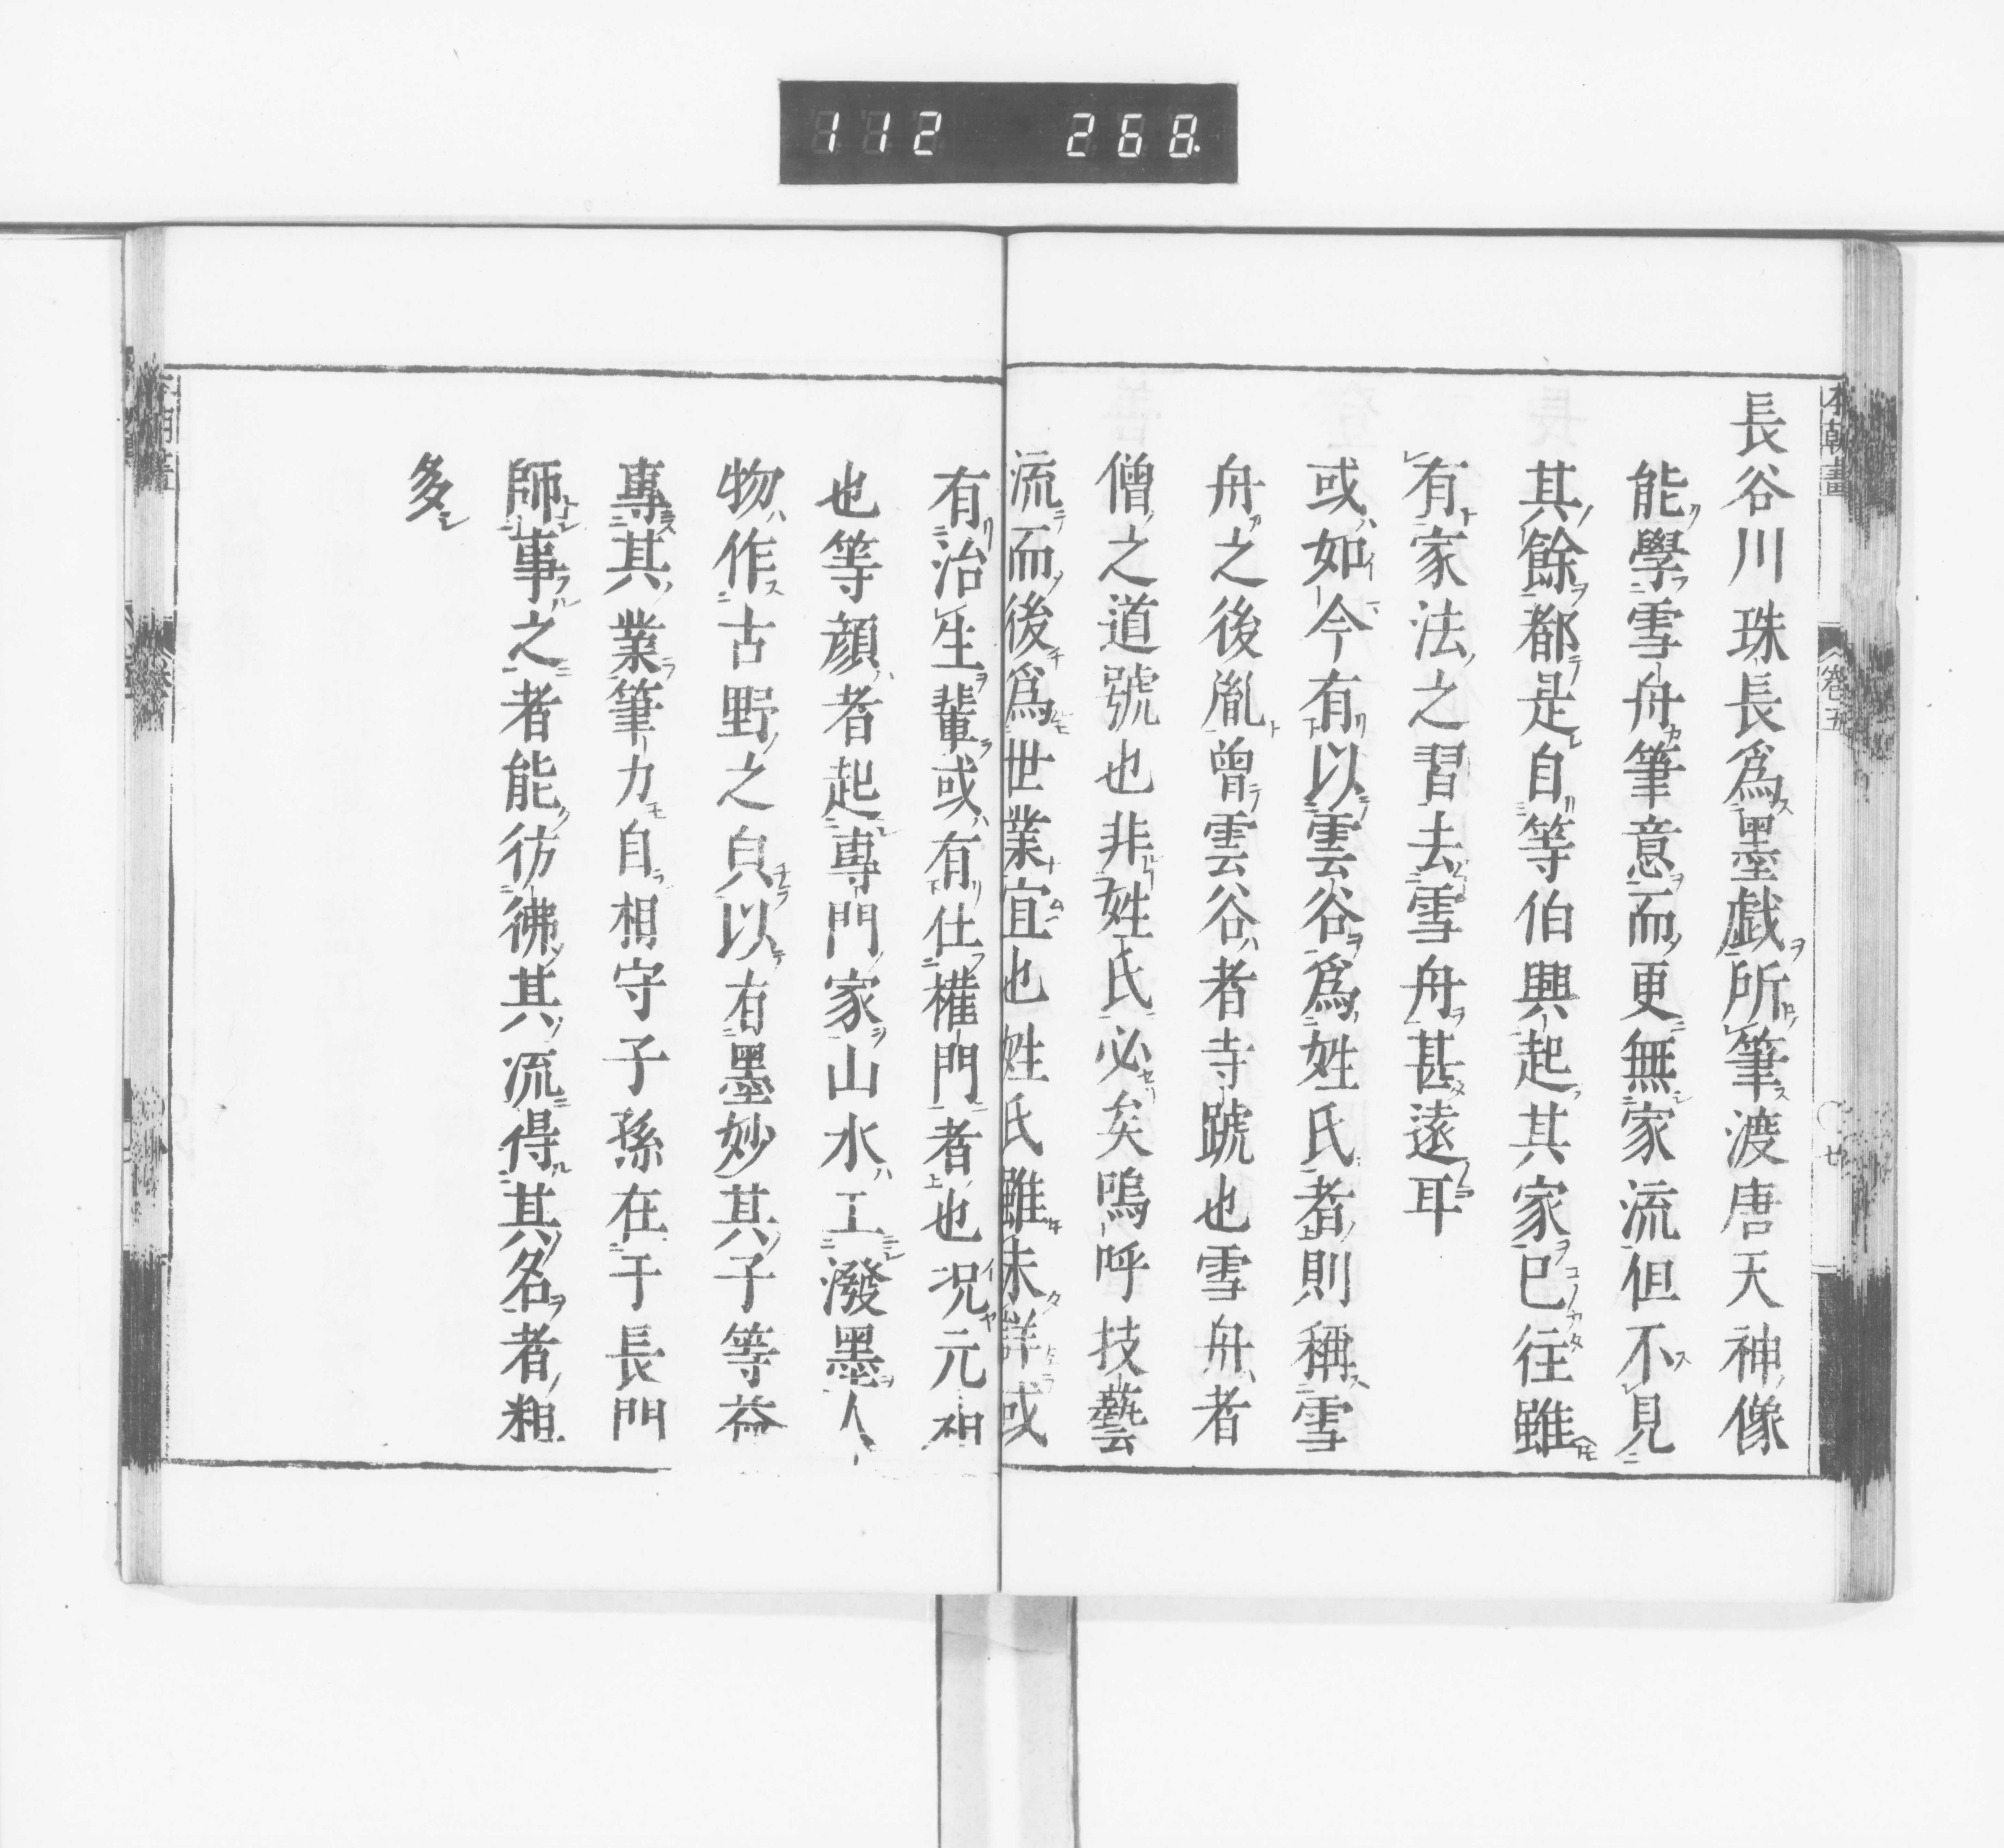 112 268
本朝畫 卷五 廿
長谷川珠長爲墨戯所筆渡唐天神像
能學雪舟筆意而更無家流但不見
其餘都是自等伯興起其家已往雖
有家法之習去雪舟甚遠耳
或如今有以雲谷爲姓氏者則稱雪
舟之後胤曾雲谷者寺號也雪舟者
僧之道號也非姓氏必矣嗚呼技藝
流而後爲世業宜也姓氏雖未詳或
有治生輩或有仕權門者也况元祖
也等顔者起專門家山水工潑墨人
物作古野之皃以有墨妙其子等益
專其業筆力自相守子孫在于長門
師事之者能彷彿其流得其名者粗
多